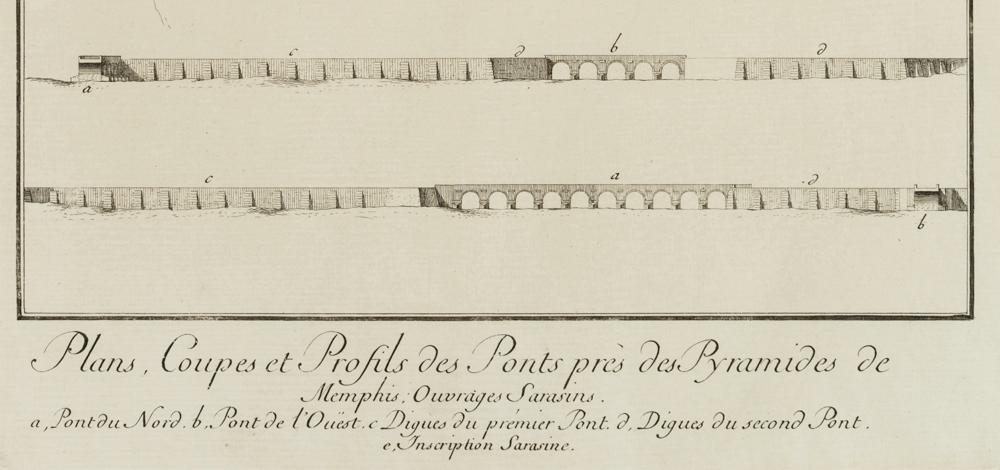 c d b d
a
c a d
b
Plans, Coupes et Profils des Ponts près des Pyramides de
Memphis, Ouvrâges Sarasins.
a, Pont du Nord. b, Pont de l'Oüest. c Digues du prémier Pont. d, Digues du second Pont.
e, Inscription Sarasine.